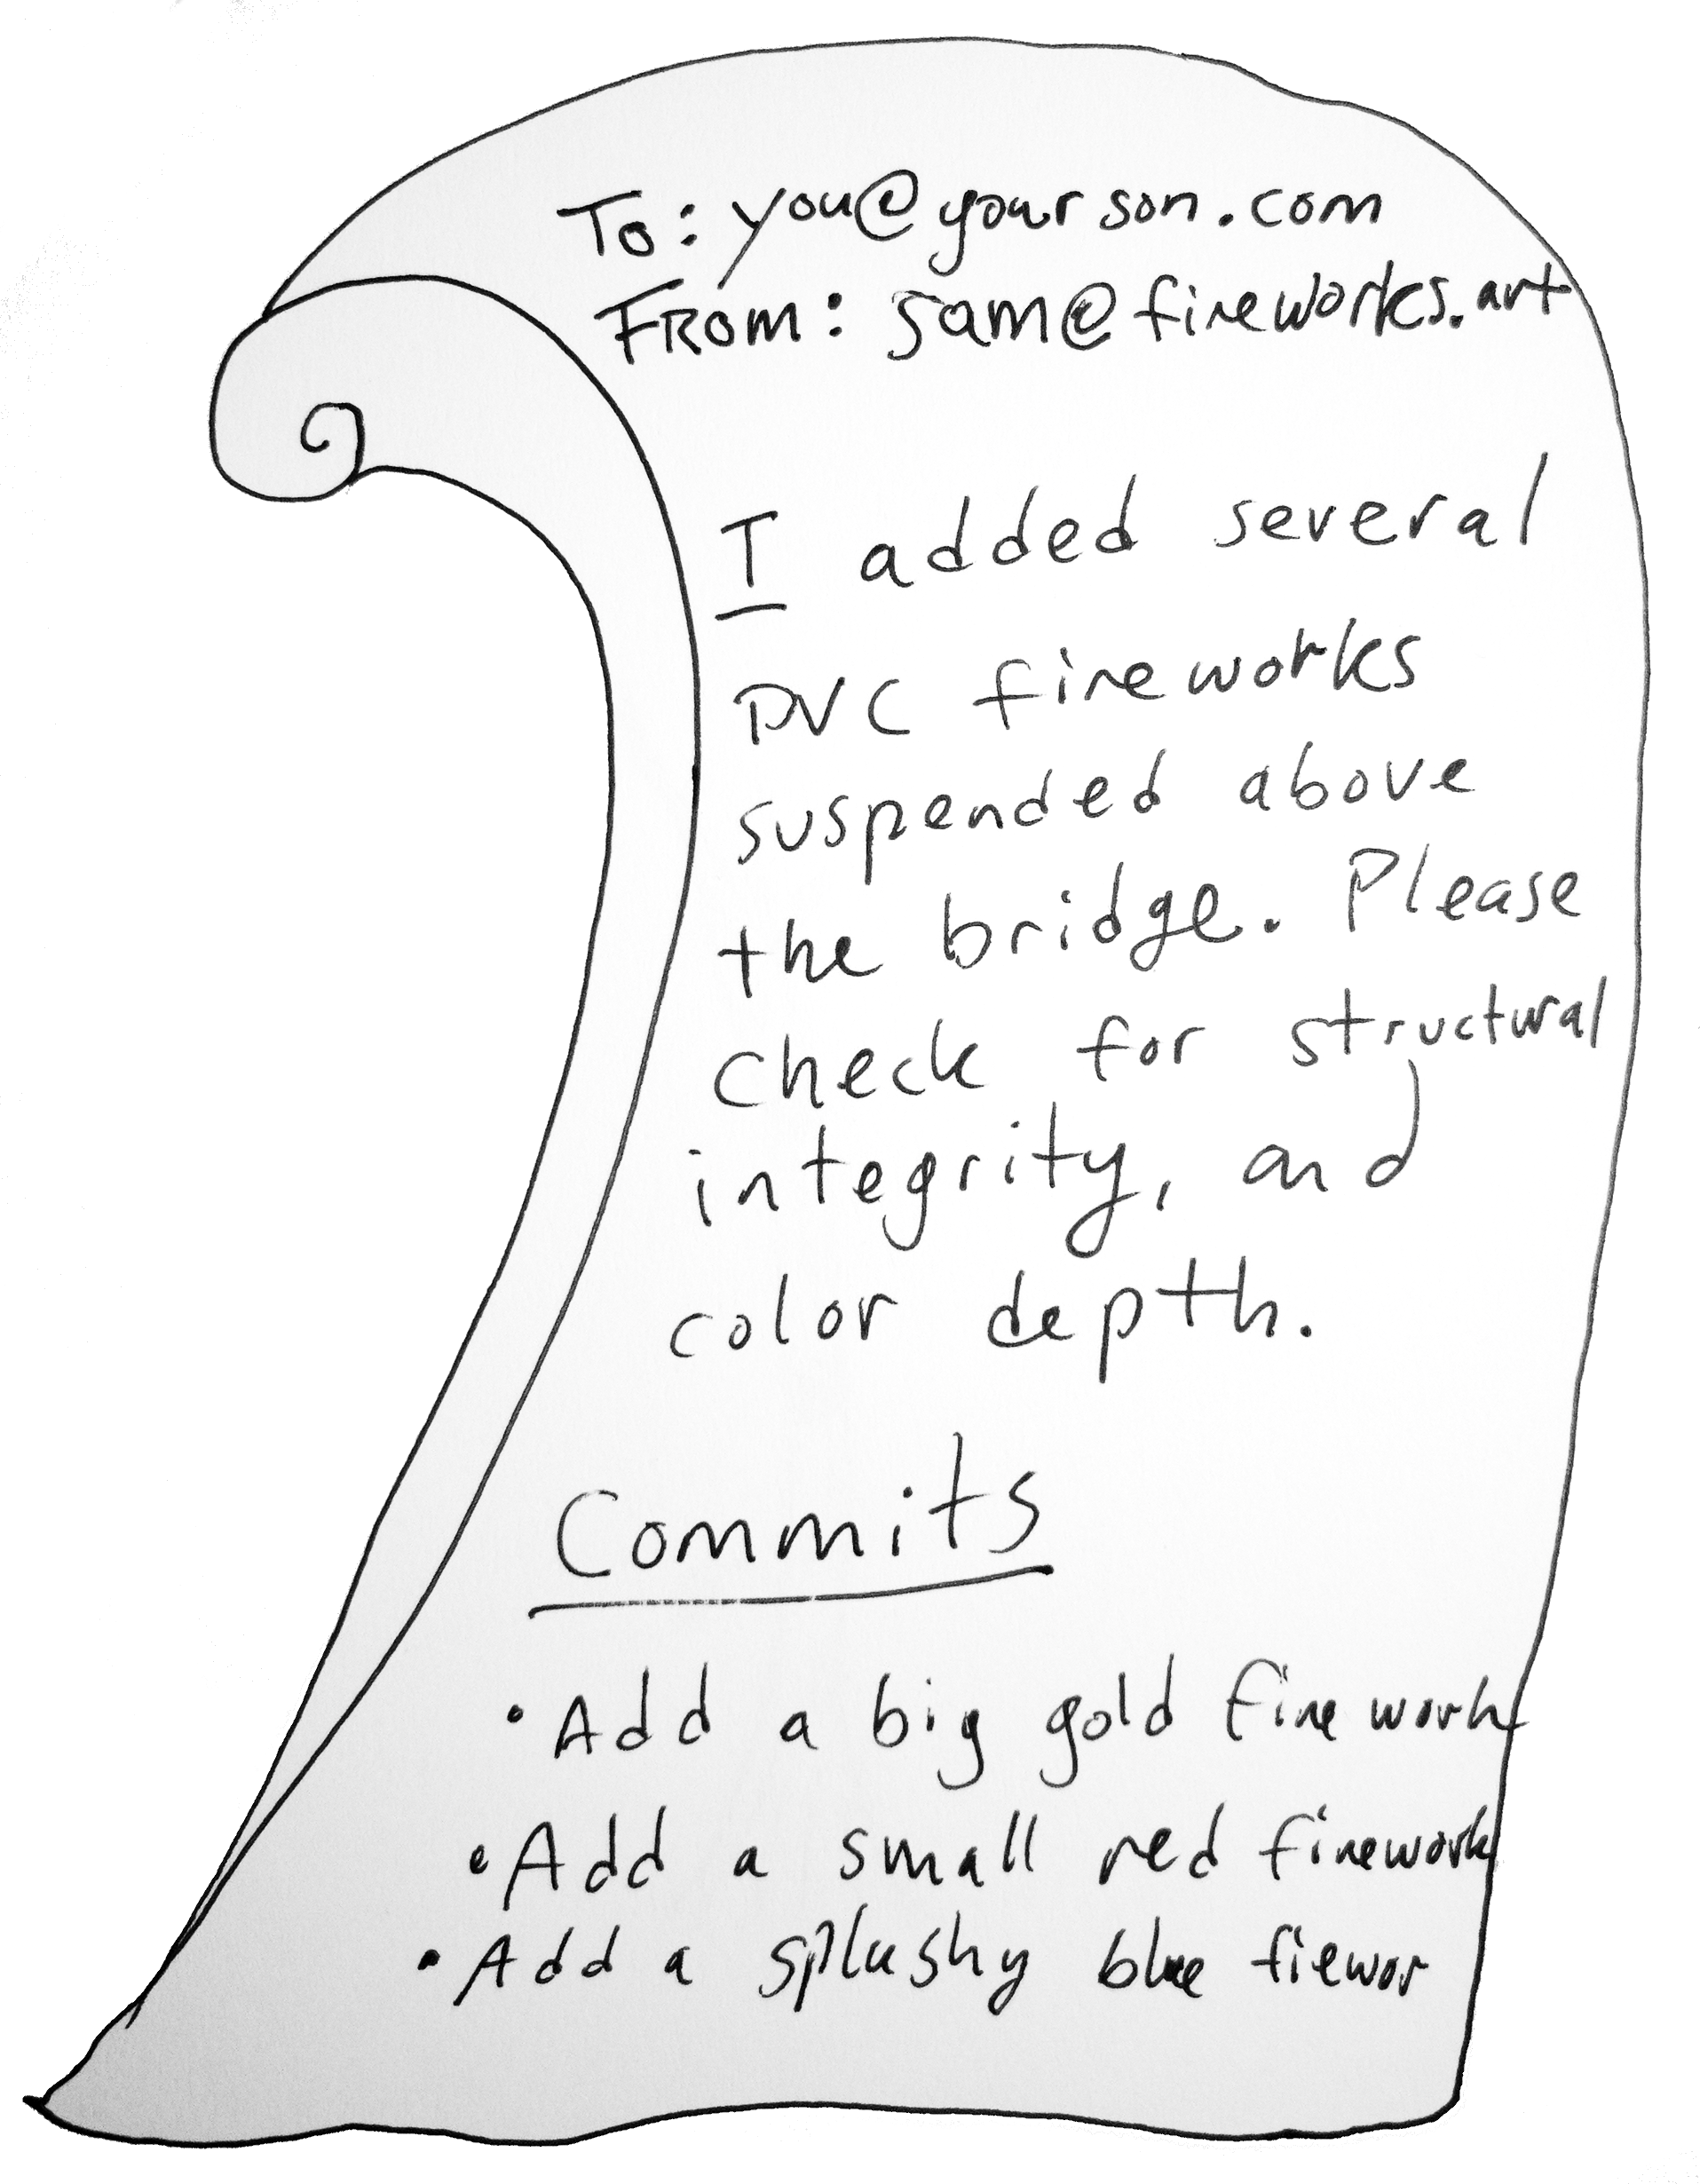 To: you@yourson.com
From: sam@fireworks.art
I added several
PVC fireworks
suspended above
the bridge. Please
check for structural
integrity, and
color depth.
Commits
• Add a big gold firework
• Add a small red firework
• Add a splushy blue fiewor